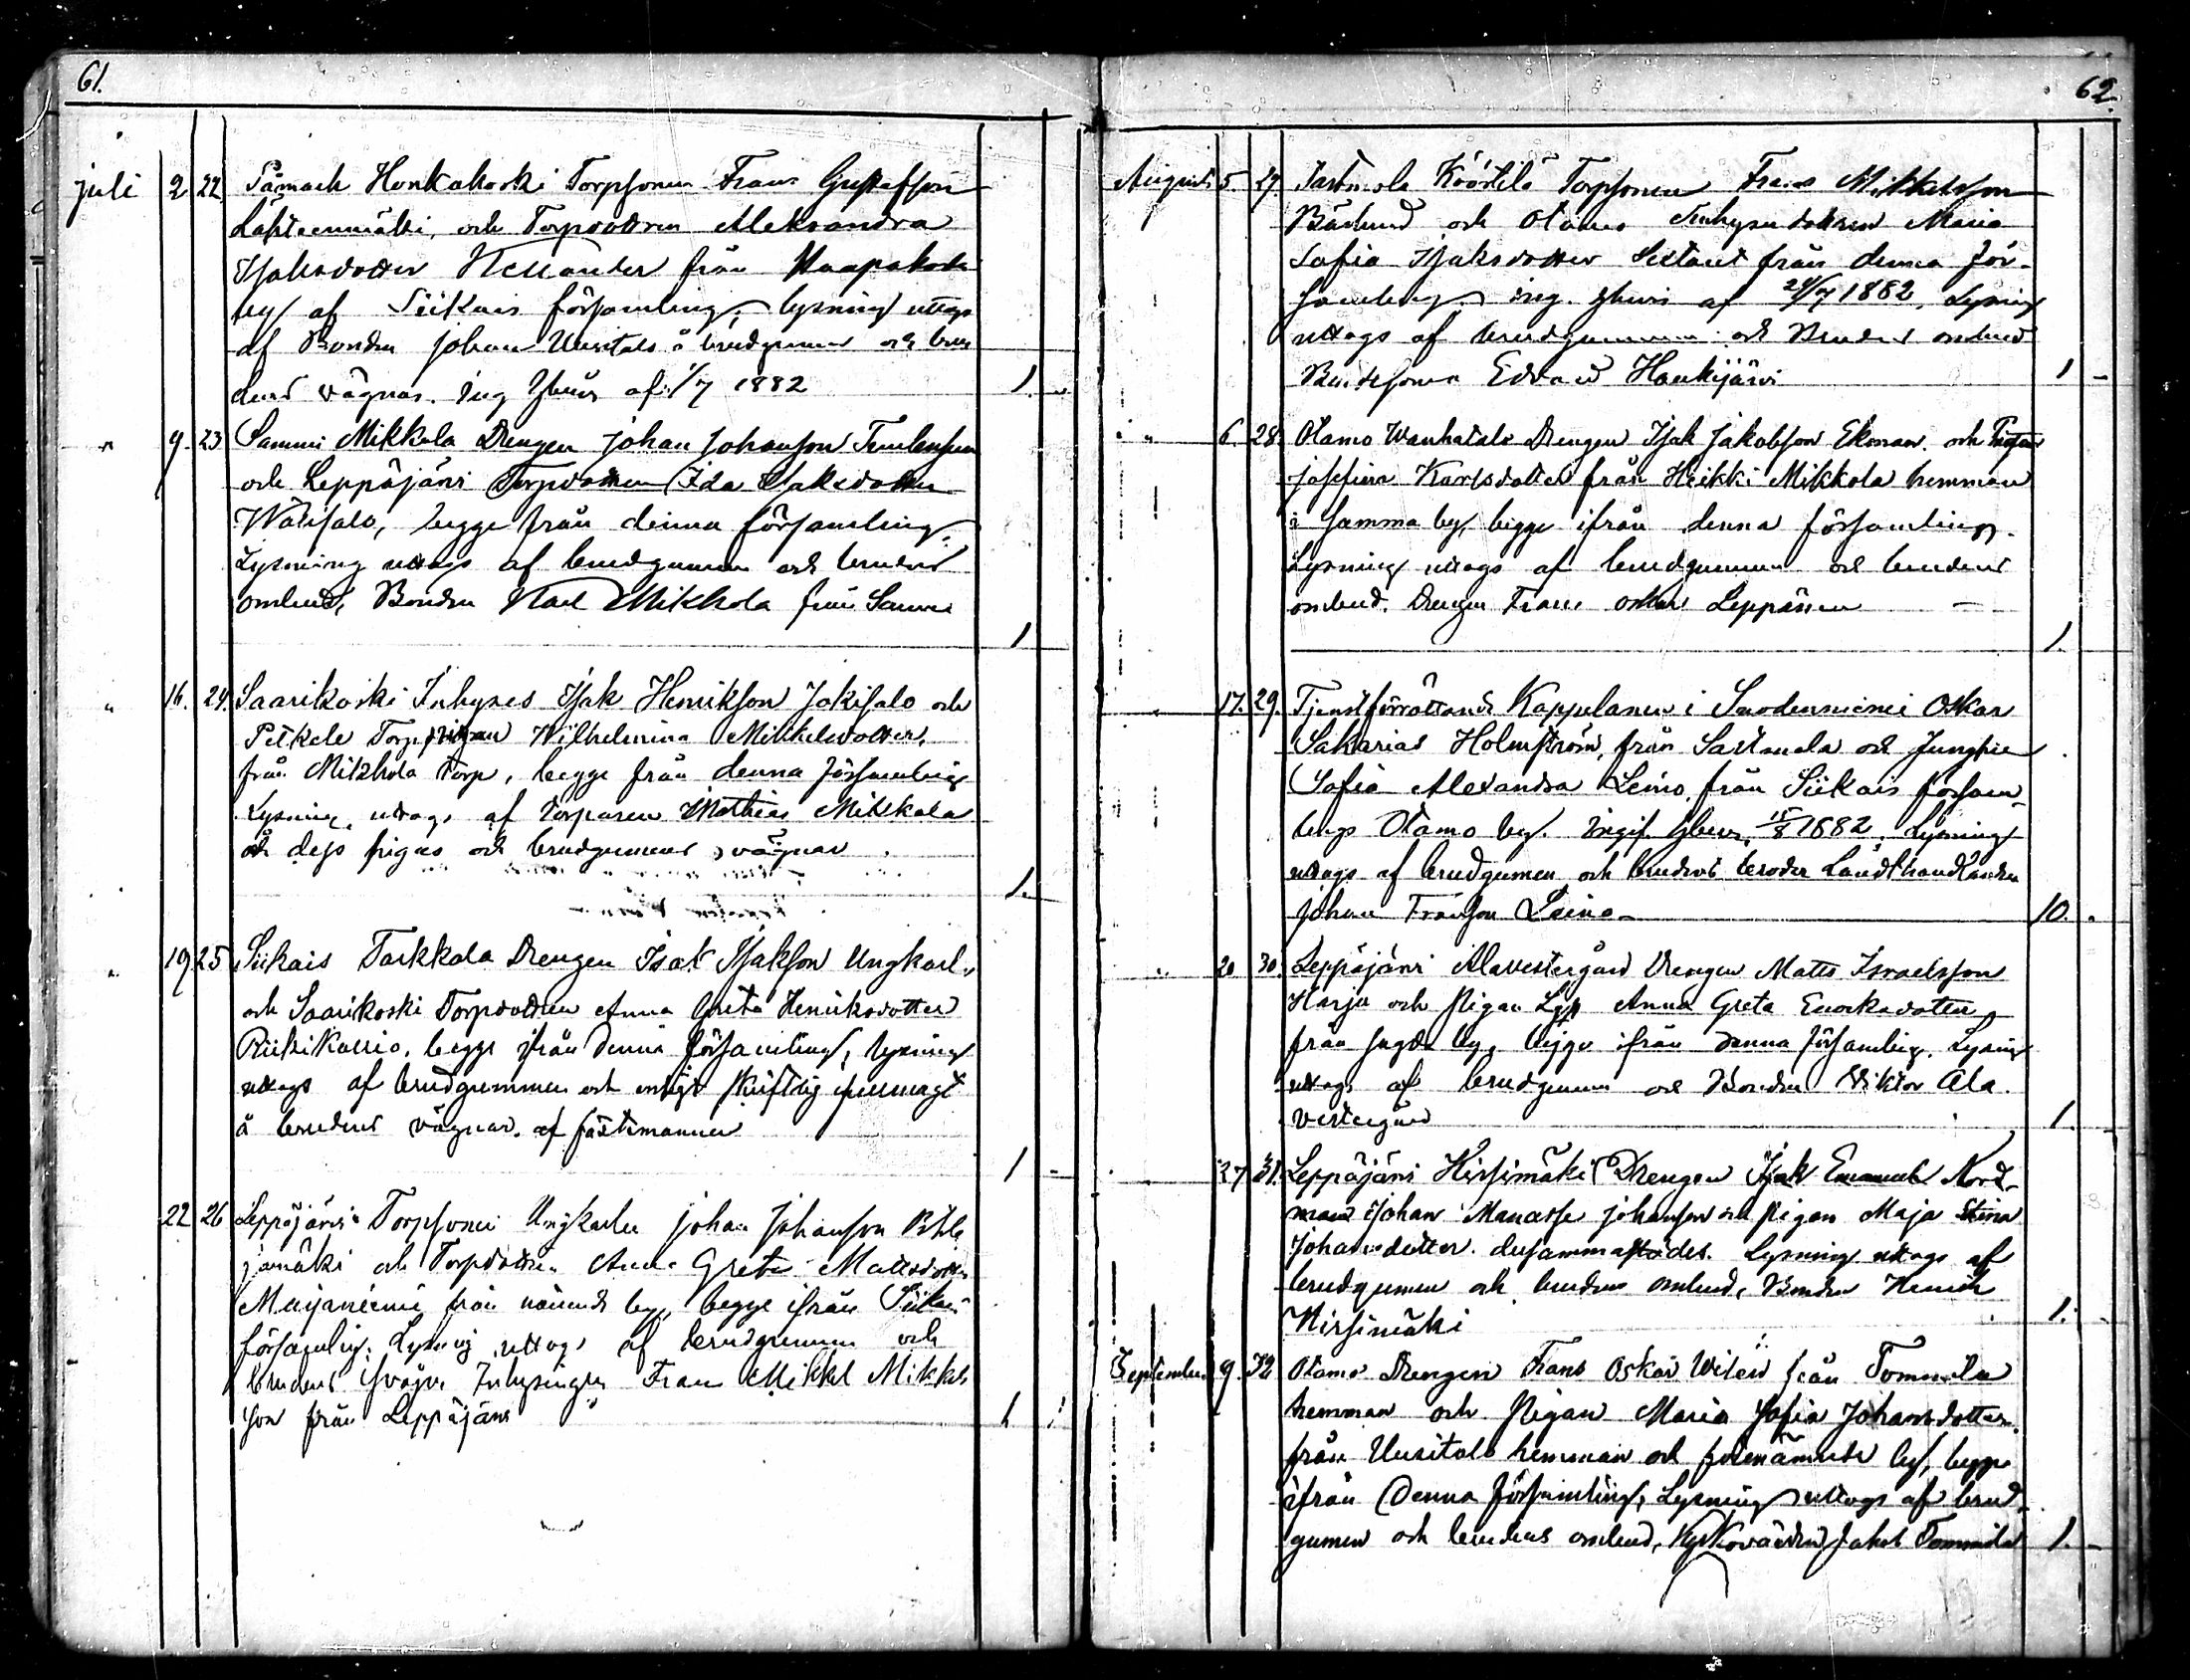 61.
juli 2 22 Sämmark Honkakoski Torpsonen Frans Gustafsson
Lähteenmäki, och Torpdottren Aleksandra
Isaksdotter Hellander från Haapakoski
by af Siikais församling, lysning uttogs
af Bonden Johan Uusitalo å brudgummens och bru
dens vägnar. ing gbevis af 1/7 1882 1. -
" 9. 23 Sammi Mikkola Drengen Johan Johansson
och Leppäjärvi Torpdottren Ida Isaksdotter
Watisalo, begge från denna församling.
Lysning uttogs af brudgummen och brudens
ombud, Bonden Karl Mikkola från Sammi
1
" 16. 24. Saarikoski Inhyses Isak Henriksson Jokisalo och
Petkele Torp pigan Wilhelmina Mikkelsdotter,
från Mikkola torp, begge från denna församling
Lysning uttogs af torparen Mathias Mikkola
å dess pigas och brudgummens vägnar
1.
" 19 25 Siikais Tarkkala Drengen Isak Isaksson Ungkarl
och Saarikoski Torpdottren Anna Greta Henriksdotter
begge ifrån denna församling, lysning
uttogs af brudgummen och enligt skriftlig fullmagt
å brudens vägnar. af fästemannen
1 -
22 26 Leppäjärvi Torpsonen Ungkarlen Johan Johansson
jamäki och Torpdottren Anna Greta Mattsdotter
Marjaniemi från nämnde by, begge ifrån Siikais
församling. Lysning uttogs af brudgummen och
brudens svåger Inhysingen Frans Mikkel Mikkels
son från Leppäjärvi 1
62.
Augusti 5. 27. Tastula Köörtilä Torpsonen Frans Mikkelsson
Bärlund och Otamo Inhysesdottren Maria
Sofia Isaksdotter Sextant från denna för-
samling ing. gbevis af 29/7 1882, Lysning
uttogs af brudgummen och Brudens ombud
Bondesonen Edvard Haukijärvi 1 -
" 6. 28. Otamo Wanhatalo Drengen Isak Jakobsson Ekman och Pigan
Josefina Karlsdotter från Heikki Mikkola hemman
i samma by, begge ifrån denna församling.
Lysning uttogs af brudgummen och brudens
ombud. Drengen Frans Oskar Leppänen
1.
" 17. 29. Tjenstförrättande Kappelanen i Suodenniemi Oskar
Sakarias Holmström, från Sastmola och Jungfrun
Sofia Alexandra Leino, från Siikais försam
lings Otamo by. ingif. gbevis 15/8 1882. Lysning
uttogs af brudgumen och brudens broder Landthandlanden
Johan Fransson Leino 10.
" 20 30. Leppäjärvi Alavestergård Drengen Matts Israelsson
Harju och Pigan Anna Greta Enoksdotter
från sagde by, begge ifrån denna församling. Lysning
uttogs af brudgummen och Bonden Viktor Ala
vestergård 1.
" 27 31. Leppäjärvi Hirsimäki Drengen Isak Emanuel Nord-
man Johan Manasse Johansson och Pigan Maja Stina
Johansdotter. dersammastädes. Lysning uttogs af
brudgumen och brudens ombud, Bonden Henrik
Hirsimäki 1.
September 9. 32 Otamo Drengen Frans Oskar Wilen från Tommila
hemman och Pigan Maria Sofia Johansdotter
från Uusitalo hemman och förenämnde by, begge
ifrån denna församling, Lysning uttogs af brud-
gumen och brudens ombud, Kyrkovärden Jakob Tommila 1. -